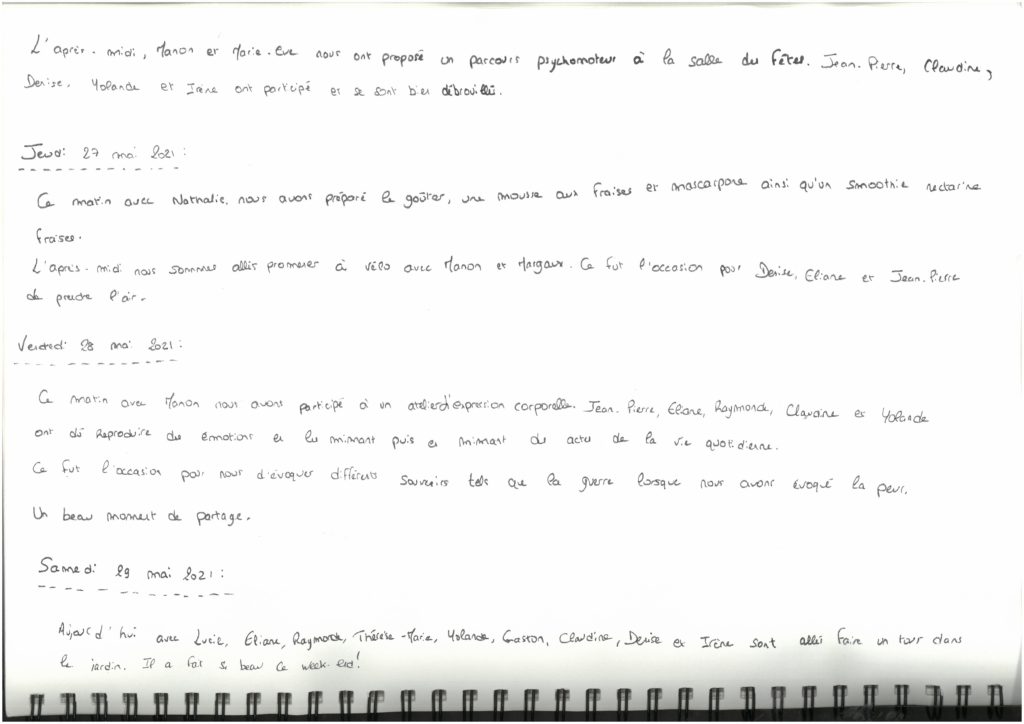 L'après-midi, Manon et Marie-Eve nous ont proposé un parcours psychomoteur à la salle du Fêtes. Jean-Pierre, Claudine,
Denise, Yolande et Irène ont participé et se sont bien débrouillé.
Jeudi 27 mai 2021 :
Ce matin avec Nathalie, nous avons préparé le goûter, une mousse aux fraises et mascarpone ainsi qu'un smoothie nectarine
fraises.
L'après-midi nous sommes allés promener à vélo avec Manon et Margaux. Ce fut l'occasion pour Denise, Eliane et Jean-Pierre
de prendre l'air.
Vendredi 28 mai 2021 :
Ce matin avec Manon nous avons participé à un atelier d'expression corporelle. Jean-Pierre, Eliane, Raymonde, Claudine et Yolande
ont dû Reproduire des émotions en les mimant puis en mimant des actes de la vie quotidienne.
Ce fut l'occasion pour nous d'évoquer différents souvenirs tels que la guerre lorsque nous avons évoqué la peur.
Un beau moment de partage.
Samedi 29 mai 2021 :
Aujourd'hui avec Lucie, Eliane, Raymonde, Thérèse-Marie, Yolande, Gaston, Claudine, Denise et Irène sont allés faire un tour dans
le jardin. Il a fait si beau ce week-end!